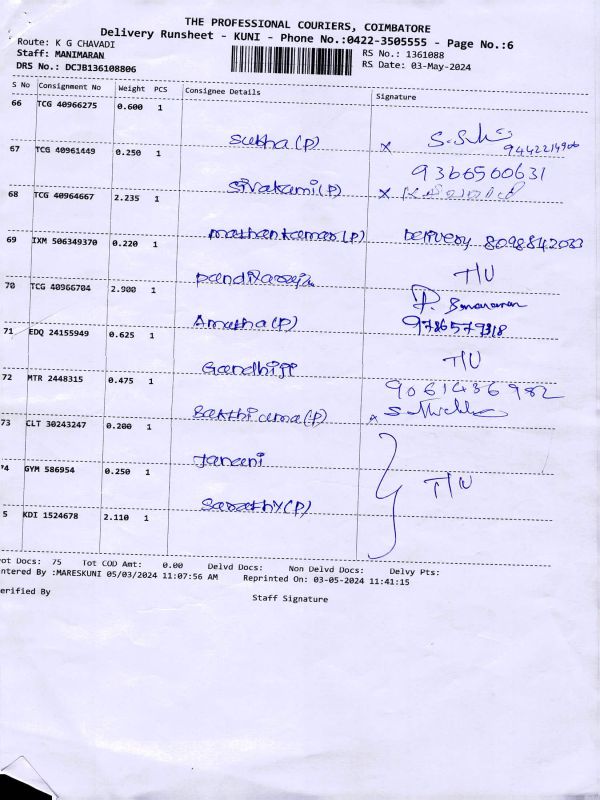 THE PROFESSIONAL COURIERS, COIMBATORE
Delivery Runsheet - KUNI - Phone No.:0422-3505555 - Page No.:6
Route: K G CHAVADI
Staff: MANIMARAN
DRS No.: DCJB136108806
RS No.: 1361088
RS Date: 03-May-2024
S No Consignment No Weight PCS Consignee Details Signature
66 TCG 40966275 0.600 1
Subha (P) x 9442214906
67 TCG 40961449 0.250 1
9366560631
Sivakami (P) x
68 TCG 40964667 2.235 1
Mathankumar (P) Delivery 8098842033
69 IXM 506349370 0.220 1
Pandiaraja T/U
70 TCG 40966704 2.900 1
Amutha (P) 9786579318
71 EDQ 24155949 0.625 1
Gandhiji T/U
72 MTR 2448315 0.475 1
9061436982
Sakthi uma (P) x
73 CLT 30243247 0.200 1
Janani
74 GYM 586954 0.250 1
T/U
Sarathy (P)
5 KDI 1524678 2.110 1
ot Docs: 75 Tot COD Amt: 0.00 Delvd Docs: Non Delvd Docs: Delvy Pts:
ntered By :MARESKUNI 05/03/2024 11:07:56 AM Reprinted On: 03-05-2024 11:41:15
erified By
Staff Signature